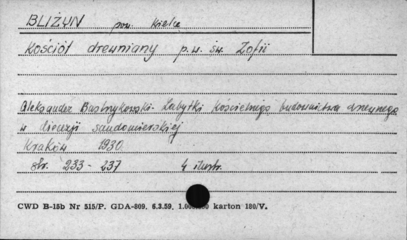 BLIŻYN pow. Kielce
Kościół drewniany p.w. św. Zofii
Aleksander Bastrzykowski. Zabytki kościelnego budownictwa drewnianego
w diecezji sandomierskiej
Kraków 1930
str. 233-237 4 ilustr.
CWD B-15b Nr 515/P. GDA-809. 6.3.59. karton 180/V.